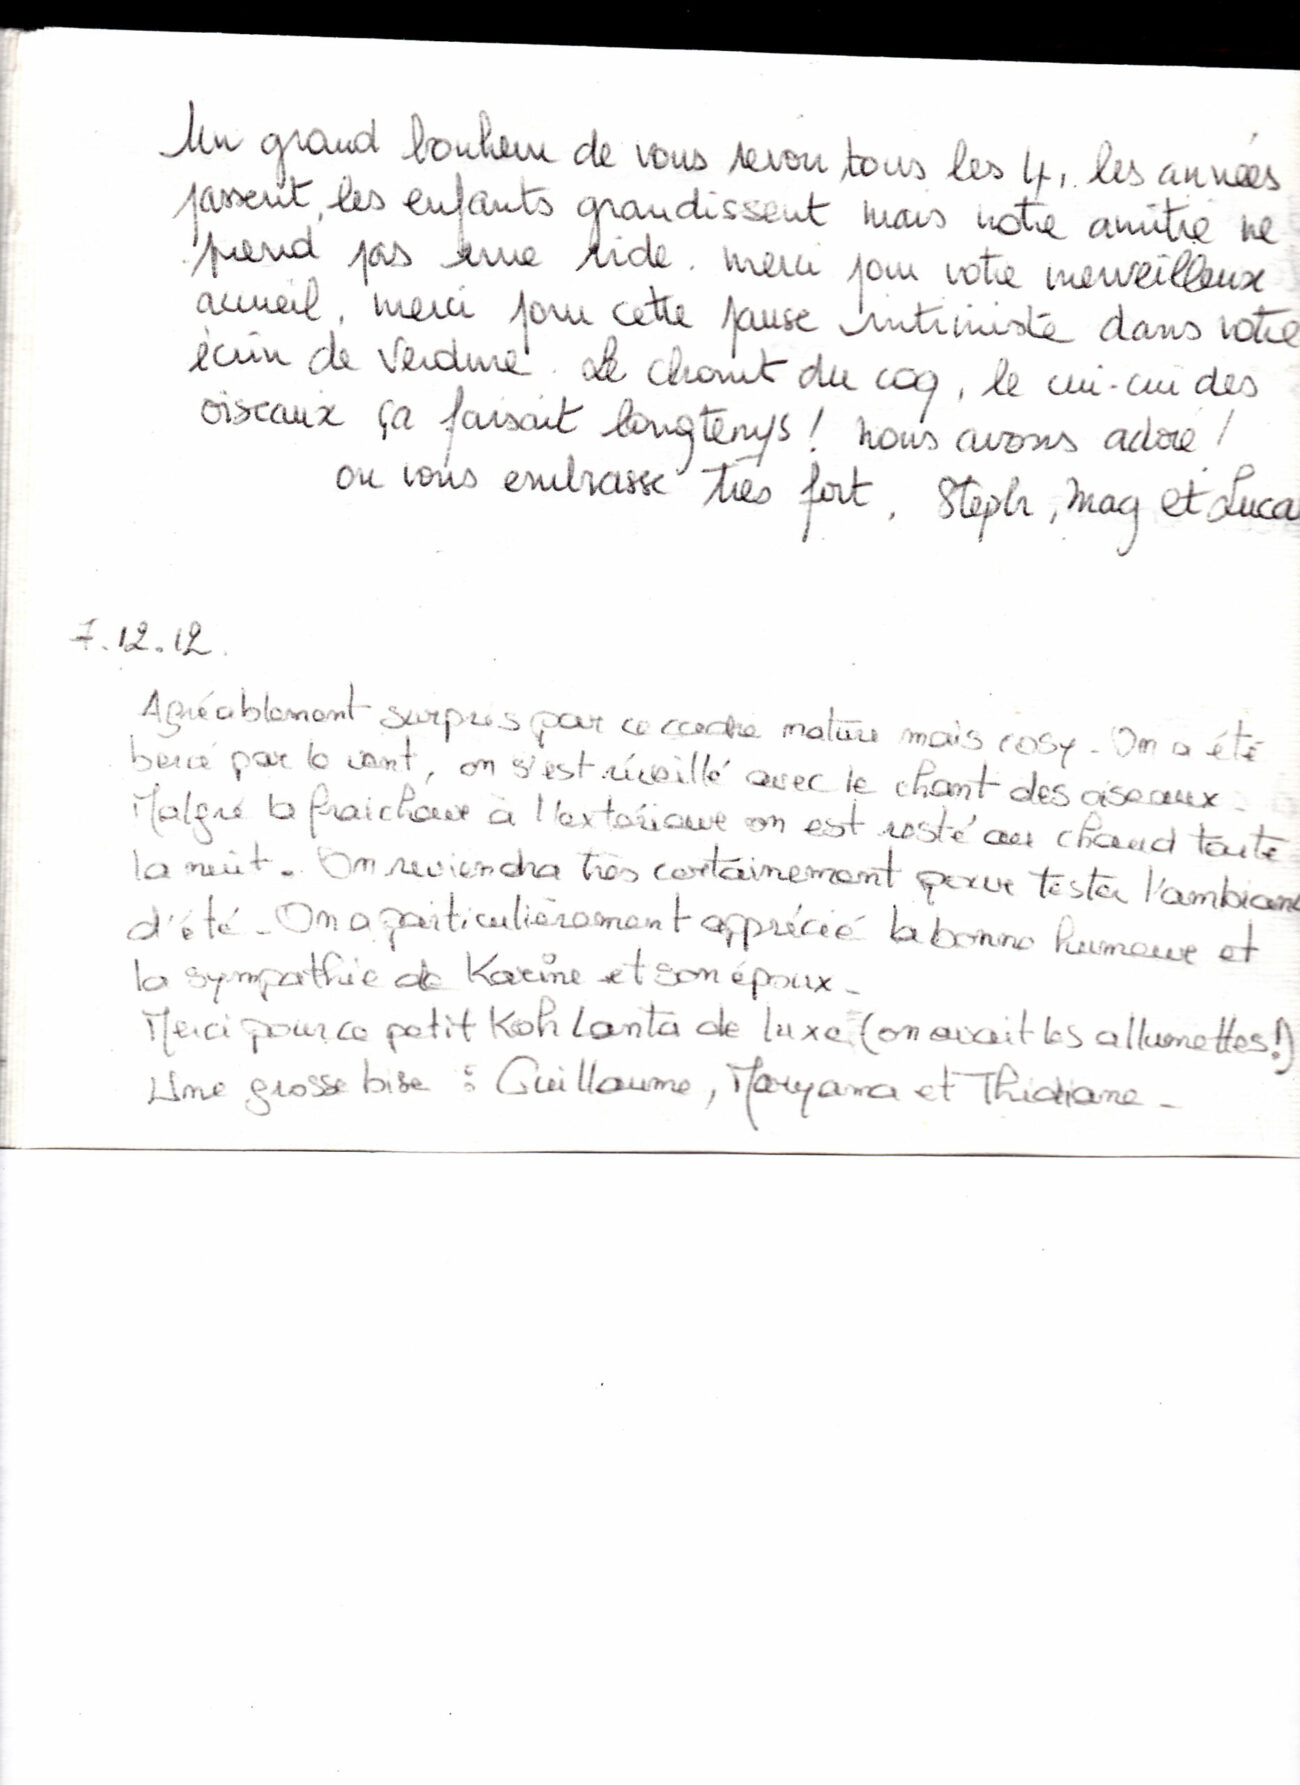 Un grand bonheur de vous revoir tous les 4, les années
passent, les enfants grandissent mais notre amitié ne
prend pas une ride. merci pour votre merveilleux
accueil, merci pour cette pause intimiste dans votre
écrin de verdure. Le chant du coq, le cui-cui des
oiseaux ça faisait longtemps! nous avons adoré!
on vous embrasse très fort, Steph, Mag et Luca
7.12.12.
Agréablement surpris par ce cadre nature mais cosy. On a été
bercé par le vent, on s'est réveillé avec le chant des oiseaux.
Malgré la fraicheur à l'extérieure on est resté au chaud toute
la nuit. On reviendra très certainement pour tester l'ambianc
d'été. On a particulièrement apprécié la bonne humeur et
la sympathie de Karine et son époux.
Merci pour ce petit Koh Lanta de luxe (on avait les allumettes!)
Une grosse bise : Guillaume, Maryama et Thidiane.